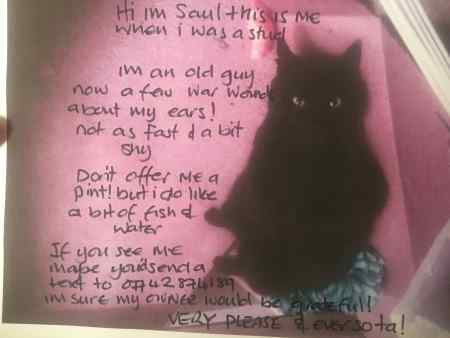 Hi Im Saul + this is ME
when i was a stud
im an old guy
now a few war wounds
about my ears!
not as fast & a bit
shy
Don't offer ME a
pint! but i do like
a bit of fish &
water
If you see ME
maybe you'd send a
text to
im sure my OWNER would be gratefull
VERY PLEASE & ever so ta!